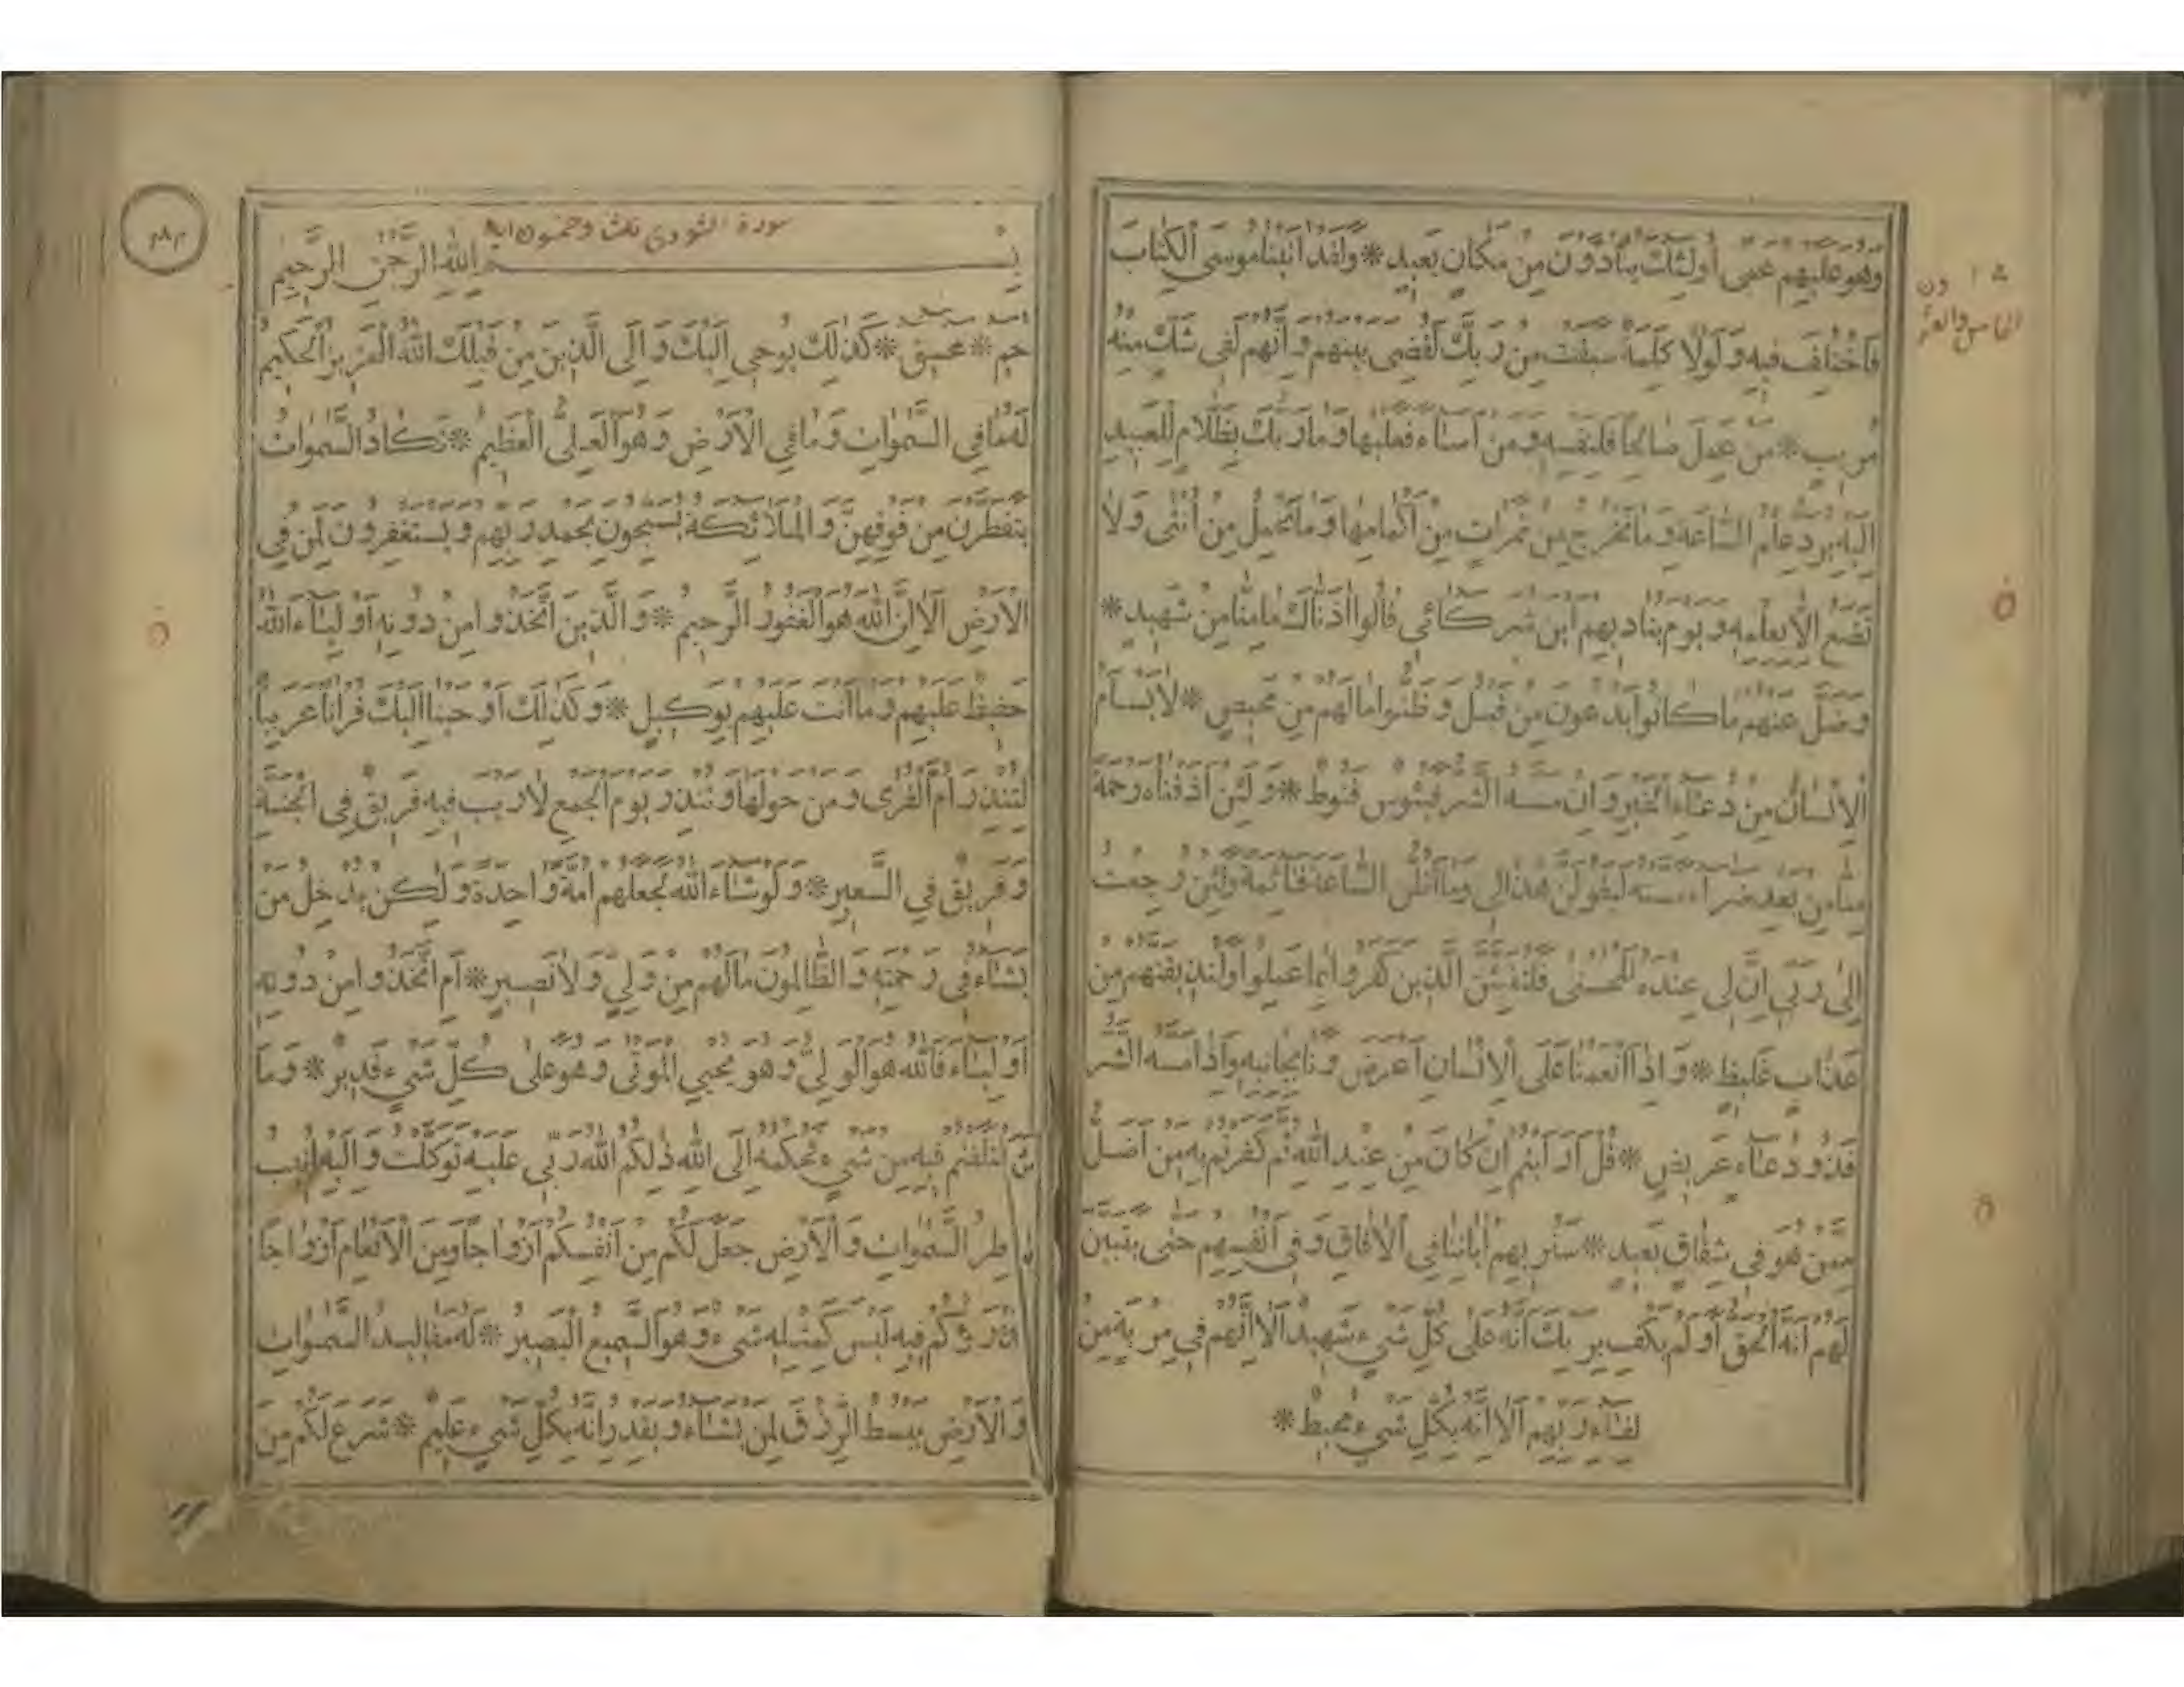 وهو عليهم عمى اولئك ينادون من مكان بعيد * ولقد اتينا موسى الكتاب
فاختلف فيه ولولا كلمة سبقت من ربك لقضى بينهم وانهم لفى شك منه
مريب * من عمل صالحا فلنفسه ومن اساء فعليها وما ربك بظلام للعبيد
اليه يرد علم الساعة وما تخرج من ثمرات من اكمامها وما تحمل من انثى ولا
تضع الا بعلمه ويوم يناديهم اين شركائى قالوا اذناك ما منا من شهيد *
وضل عنهم ما كانوا يدعون من قبل وظنوا ما لهم من محيص * لا يسأم
الانسان من دعاء الخير وان مسه الشر فيئوس قنوط * ولئن اذقناه رحمة
منا من بعد ضراء مسته ليقولن هذا لى وما اظن الساعة قائمة ولئن رجعت
الى ربى ان لى عنده للحسنى فلننبئن الذين كفروا بما عملوا ولنذيقنهم من
عذاب غليظ * واذا انعمنا على الانسان اعرض ونا بجانبه واذا مسه الشر
فذو دعاء عريض * قل ارايتم ان كان من عند الله ثم كفرتم به من اضل
ممن هو فى شقاق بعيد * سنريهم اياتنا فى الافاق وفى انفسهم حتى يتبين
لهم انه الحق اولم يكف بربك انه على كل شىء شهيد الا انهم فى مرية من
لقاء ربهم الا انه بكل شىء محيط *
الخامس والعشرون
سورة الشورى ثلث وخمسون اية
بسم الله الرحمن الرحيم
حم * عسق * كذلك يوحى اليك والى الذين من قبلك الله العزيز الحكيم
له ما فى السموات وما فى الارض وهو العلى العظيم * تكاد السموات
يتفطرن من فوقهن والملائكة يسبحون بحمد ربهم ويستغفرون لمن فى
الارض الا ان الله هو الغفور الرحيم * والذين اتخذوا من دونه اولياء الله
حفيظ عليهم وما انت عليهم بوكيل * وكذلك اوحينا اليك قرانا عربيا
لتنذر ام القرى ومن حولها وتنذر يوم الجمع لا ريب فيه فريق فى الجنة
وفريق فى السعير * ولو شاء الله لجعلهم امة واحدة ولكن يدخل من
يشاء فى رحمته والظالمون ما لهم من ولى ولا نصير * ام اتخذوا من دونه
اولياء فالله هو الولى وهو يحيى الموتى وهو على كل شىء قدير * وما
اختلفتم فيه من شىء فحكمه الى الله ذلكم الله ربى عليه توكلت واليه انيب
فاطر السموات والارض جعل لكم من انفسكم ازواجا ومن الانعام ازواجا
يذرؤكم فيه ليس كمثله شىء وهو السميع البصير * له مقاليد السموات
والارض يبسط الرزق لمن يشاء ويقدر انه بكل شىء عليم * شرع لكم من